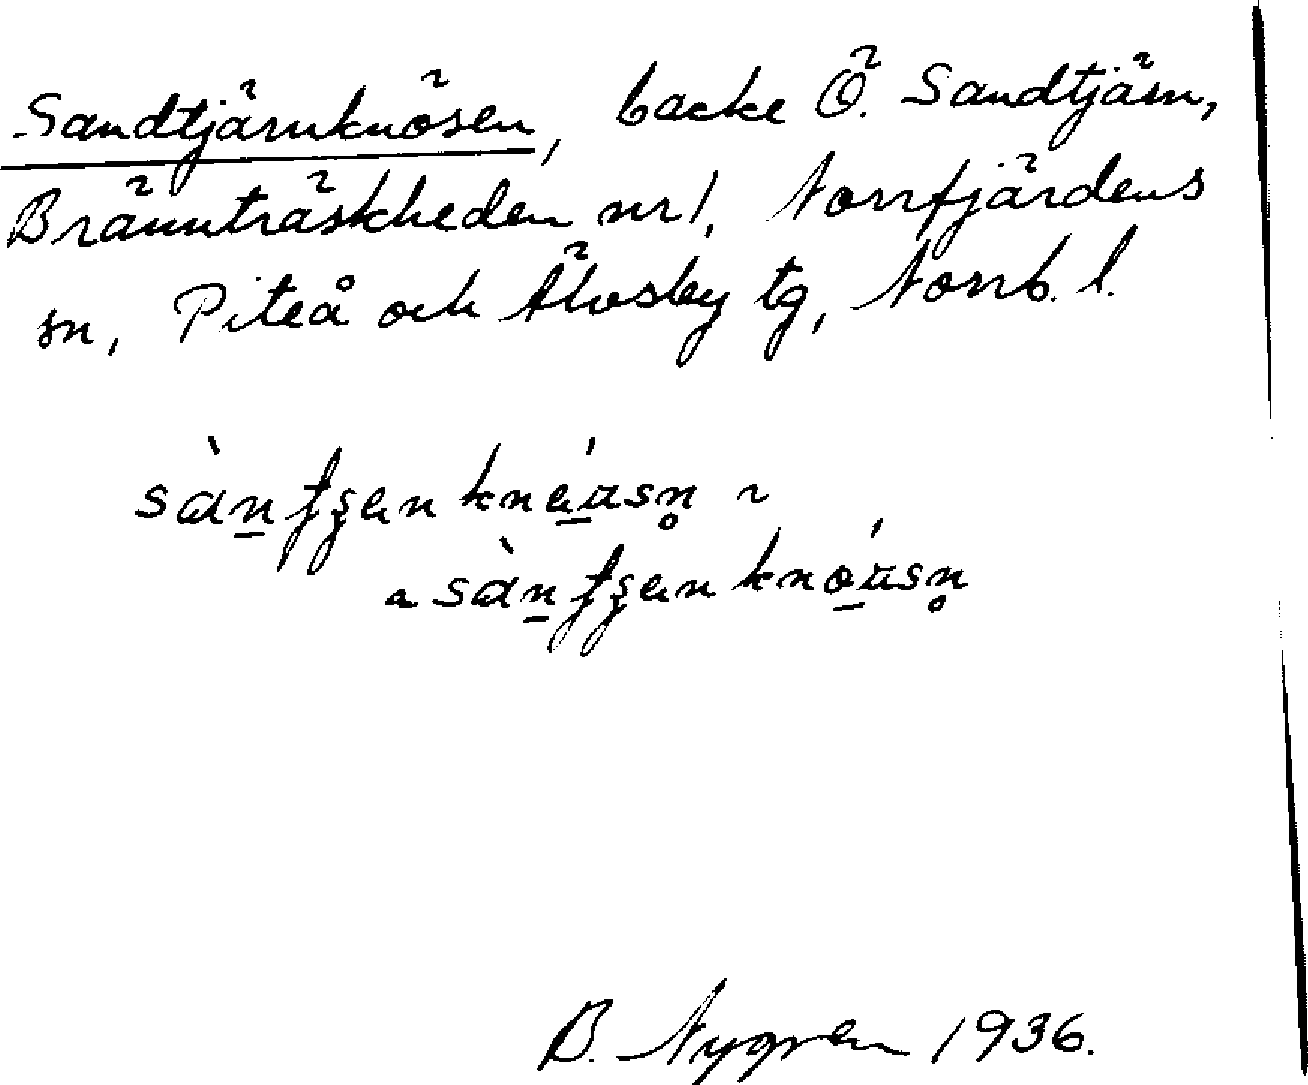 Sandtjärnknösen, backe Ö. Sandtjärn,
Brännträskheden nr 1, Norrfjärdens
sn, Piteå och Älvsby tg, Norrb. l.
B. Nygren 1936.